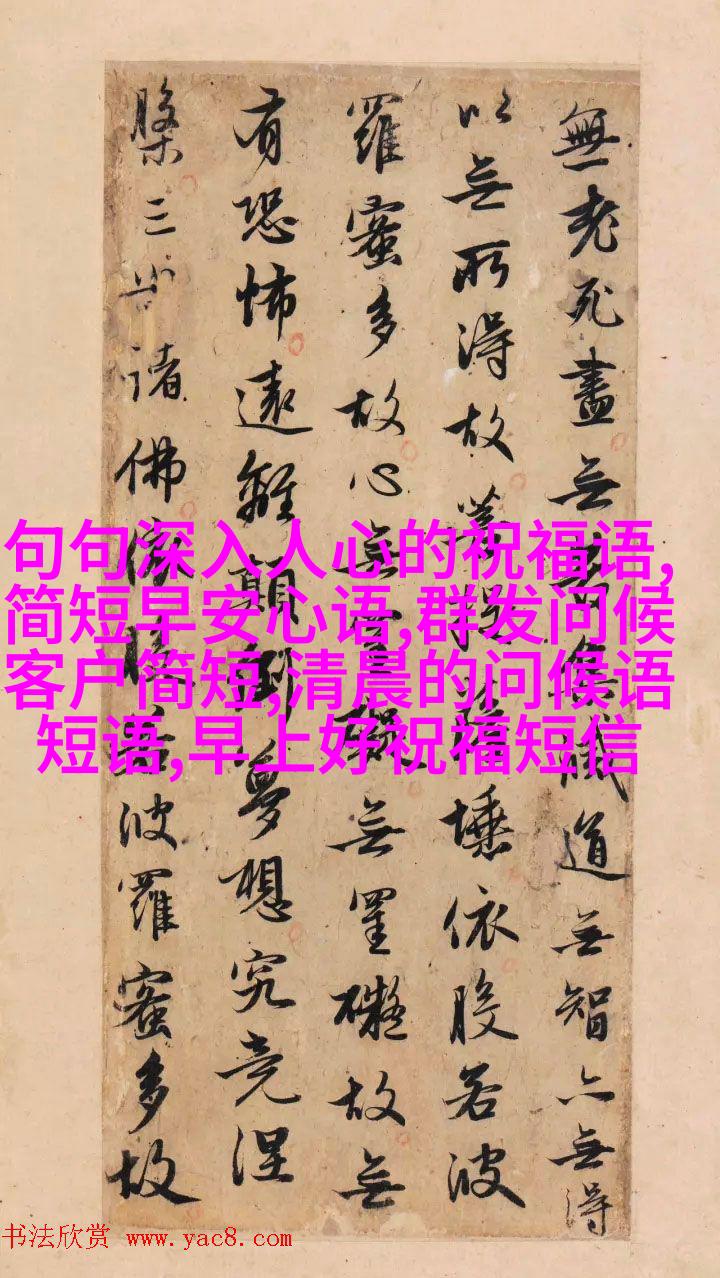 無老死盡无苦集滅道无智亦无得
以无所得故菩提薩埵依般若波
羅蜜多故心无罣礙无罣礙故无
有恐怖遠離顛倒夢想究竟涅
槃三世諸佛依般若波羅蜜多故
句句深入人心的祝福语,
简短早安心语,群发问候
客户简短,清晨的问候语
短语,早上好祝福短信
书法欣赏 www.yac8.com